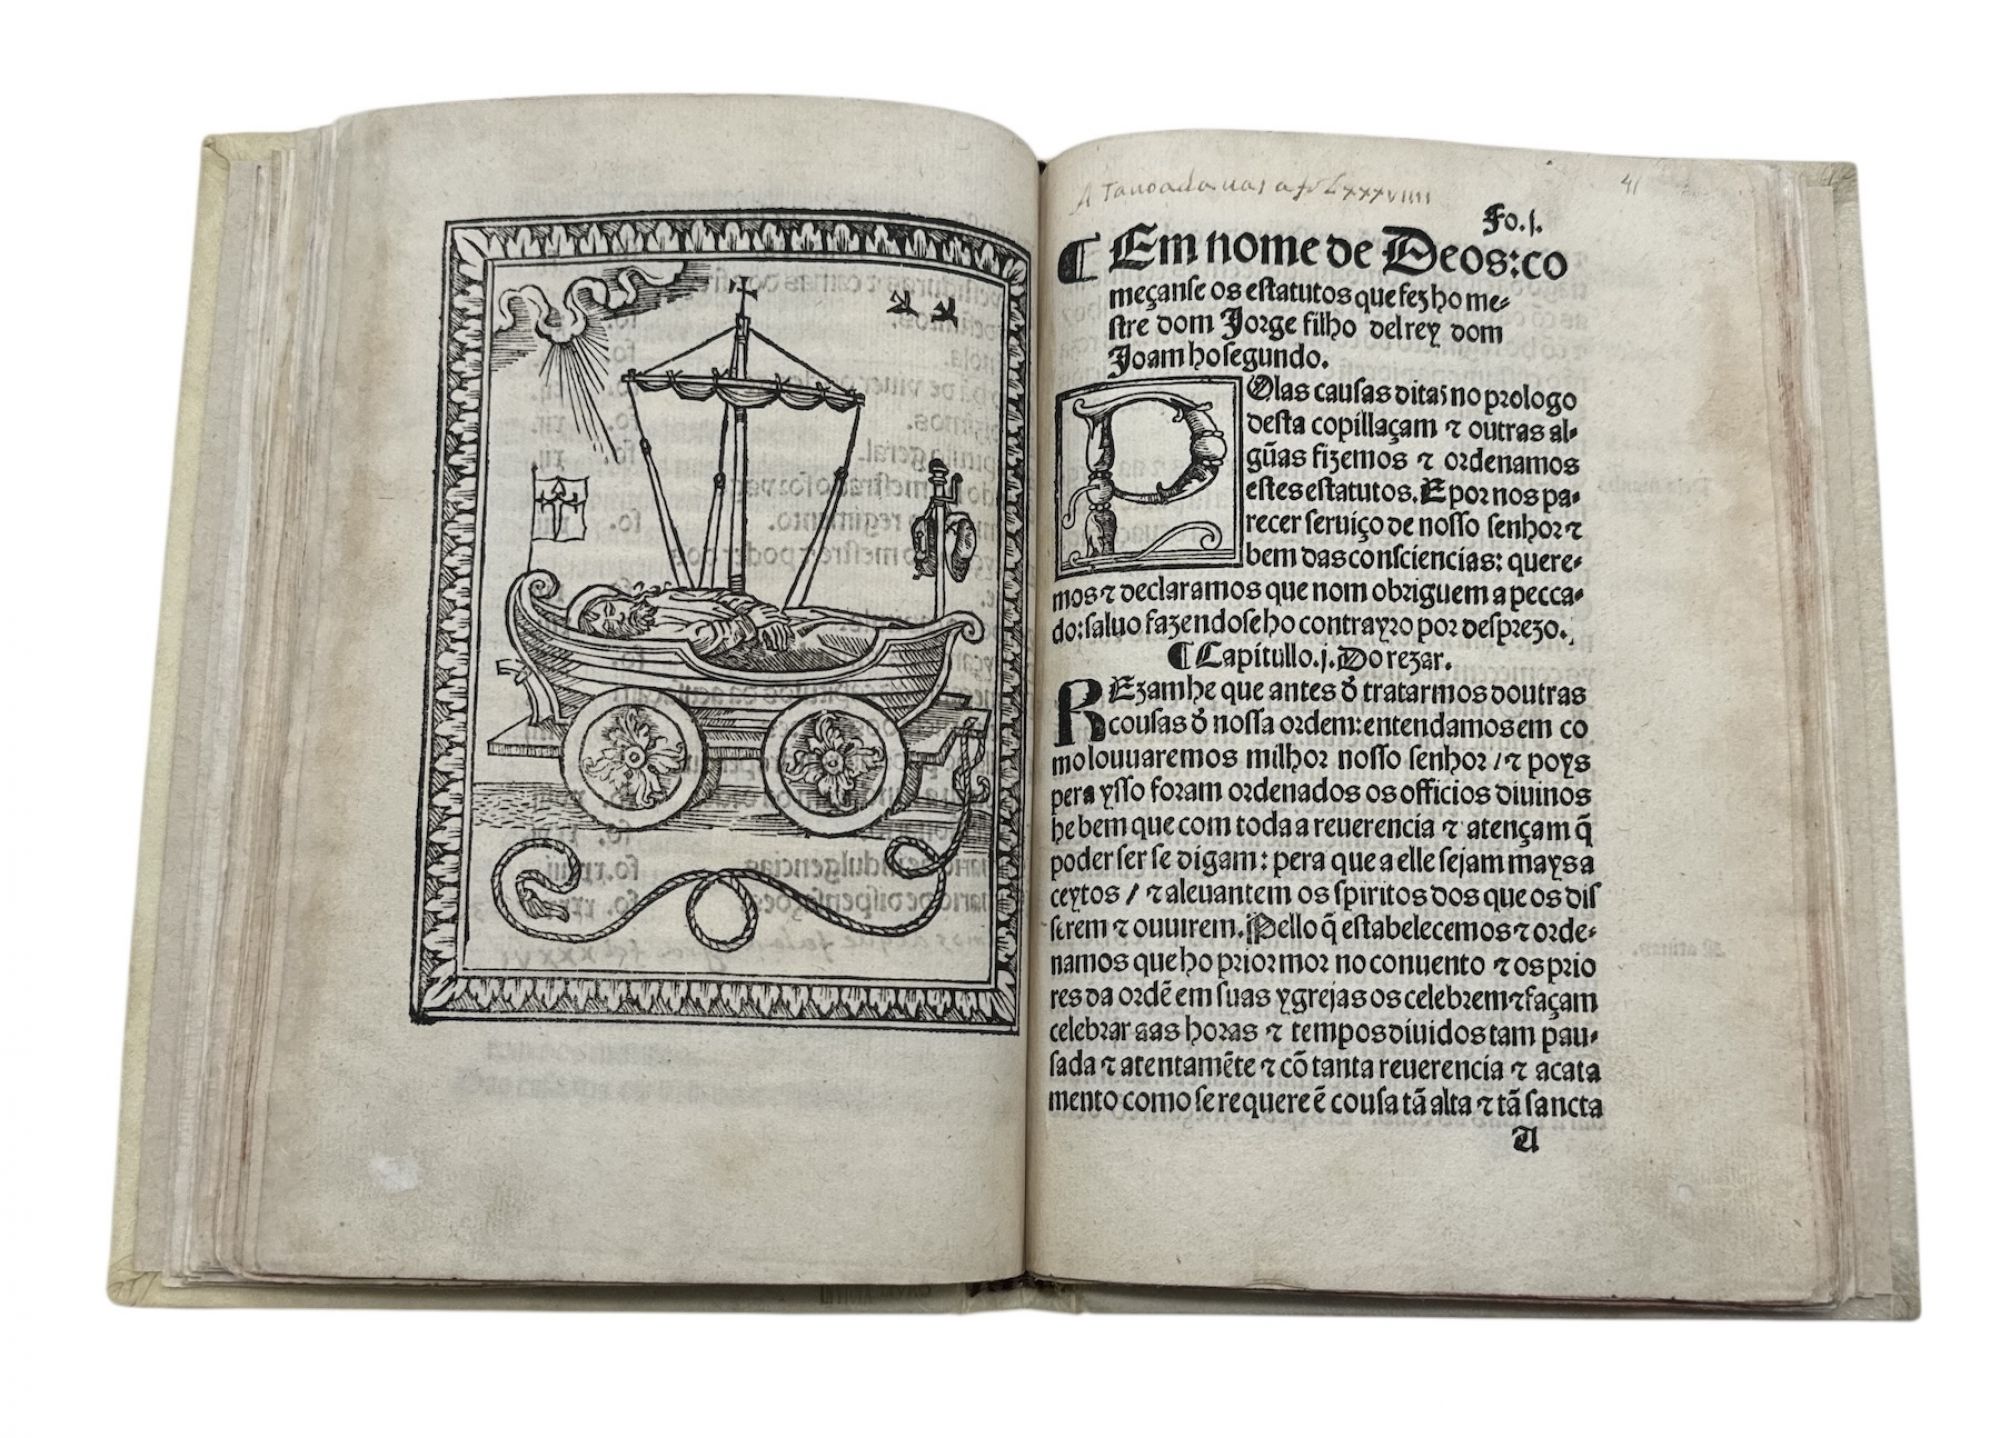 A Tauoada uai a fo Lxxxviiii
41
Fo.j.
¶ Em nome de Deos: co
meçanse os estatutos que fez ho me-
stre dom Jorge filho delrey dom
Joam ho segundo.
POlas causas ditas no prologo
desta copillaçam ⁊ outras al-
gũas fizemos ⁊ ordenamos
estes estatutos. E por nos pa-
recer seruiço de nosso senhor ⁊
bem das consciencias: quere-
mos ⁊ declaramos que nom obriguem a pecca-
do: saluo fazendose ho contrayro por desprezo.
¶ Capitullo.j. Do rezar.
REzam he que antes d̃ tratarmos doutras
cousas d̃ nossa ordem: entendamos em co
mo louuaremos milhor nosso senhor / ⁊ poys
pera ysso foram ordenados os officios diuinos
he bem que com toda a reuerencia ⁊ atençam q̃
poder ser se digam: pera que a elle sejam mays a
ceytos / ⁊ aleuantem os spiritos dos que os dis
serem ⁊ ouuirem. Pello q̃ estabelecemos ⁊ orde-
namos que ho prior mor no conuento ⁊ os prio
res da ordẽ em suas ygrejas os celebrem ⁊ façam
celebrar aas horas ⁊ tempos diuidos tam pau-
sada ⁊ atentamẽte ⁊ cõ tanta reuerencia ⁊ acata
mento como se requere ẽ cousa tã alta ⁊ tã sancta
A